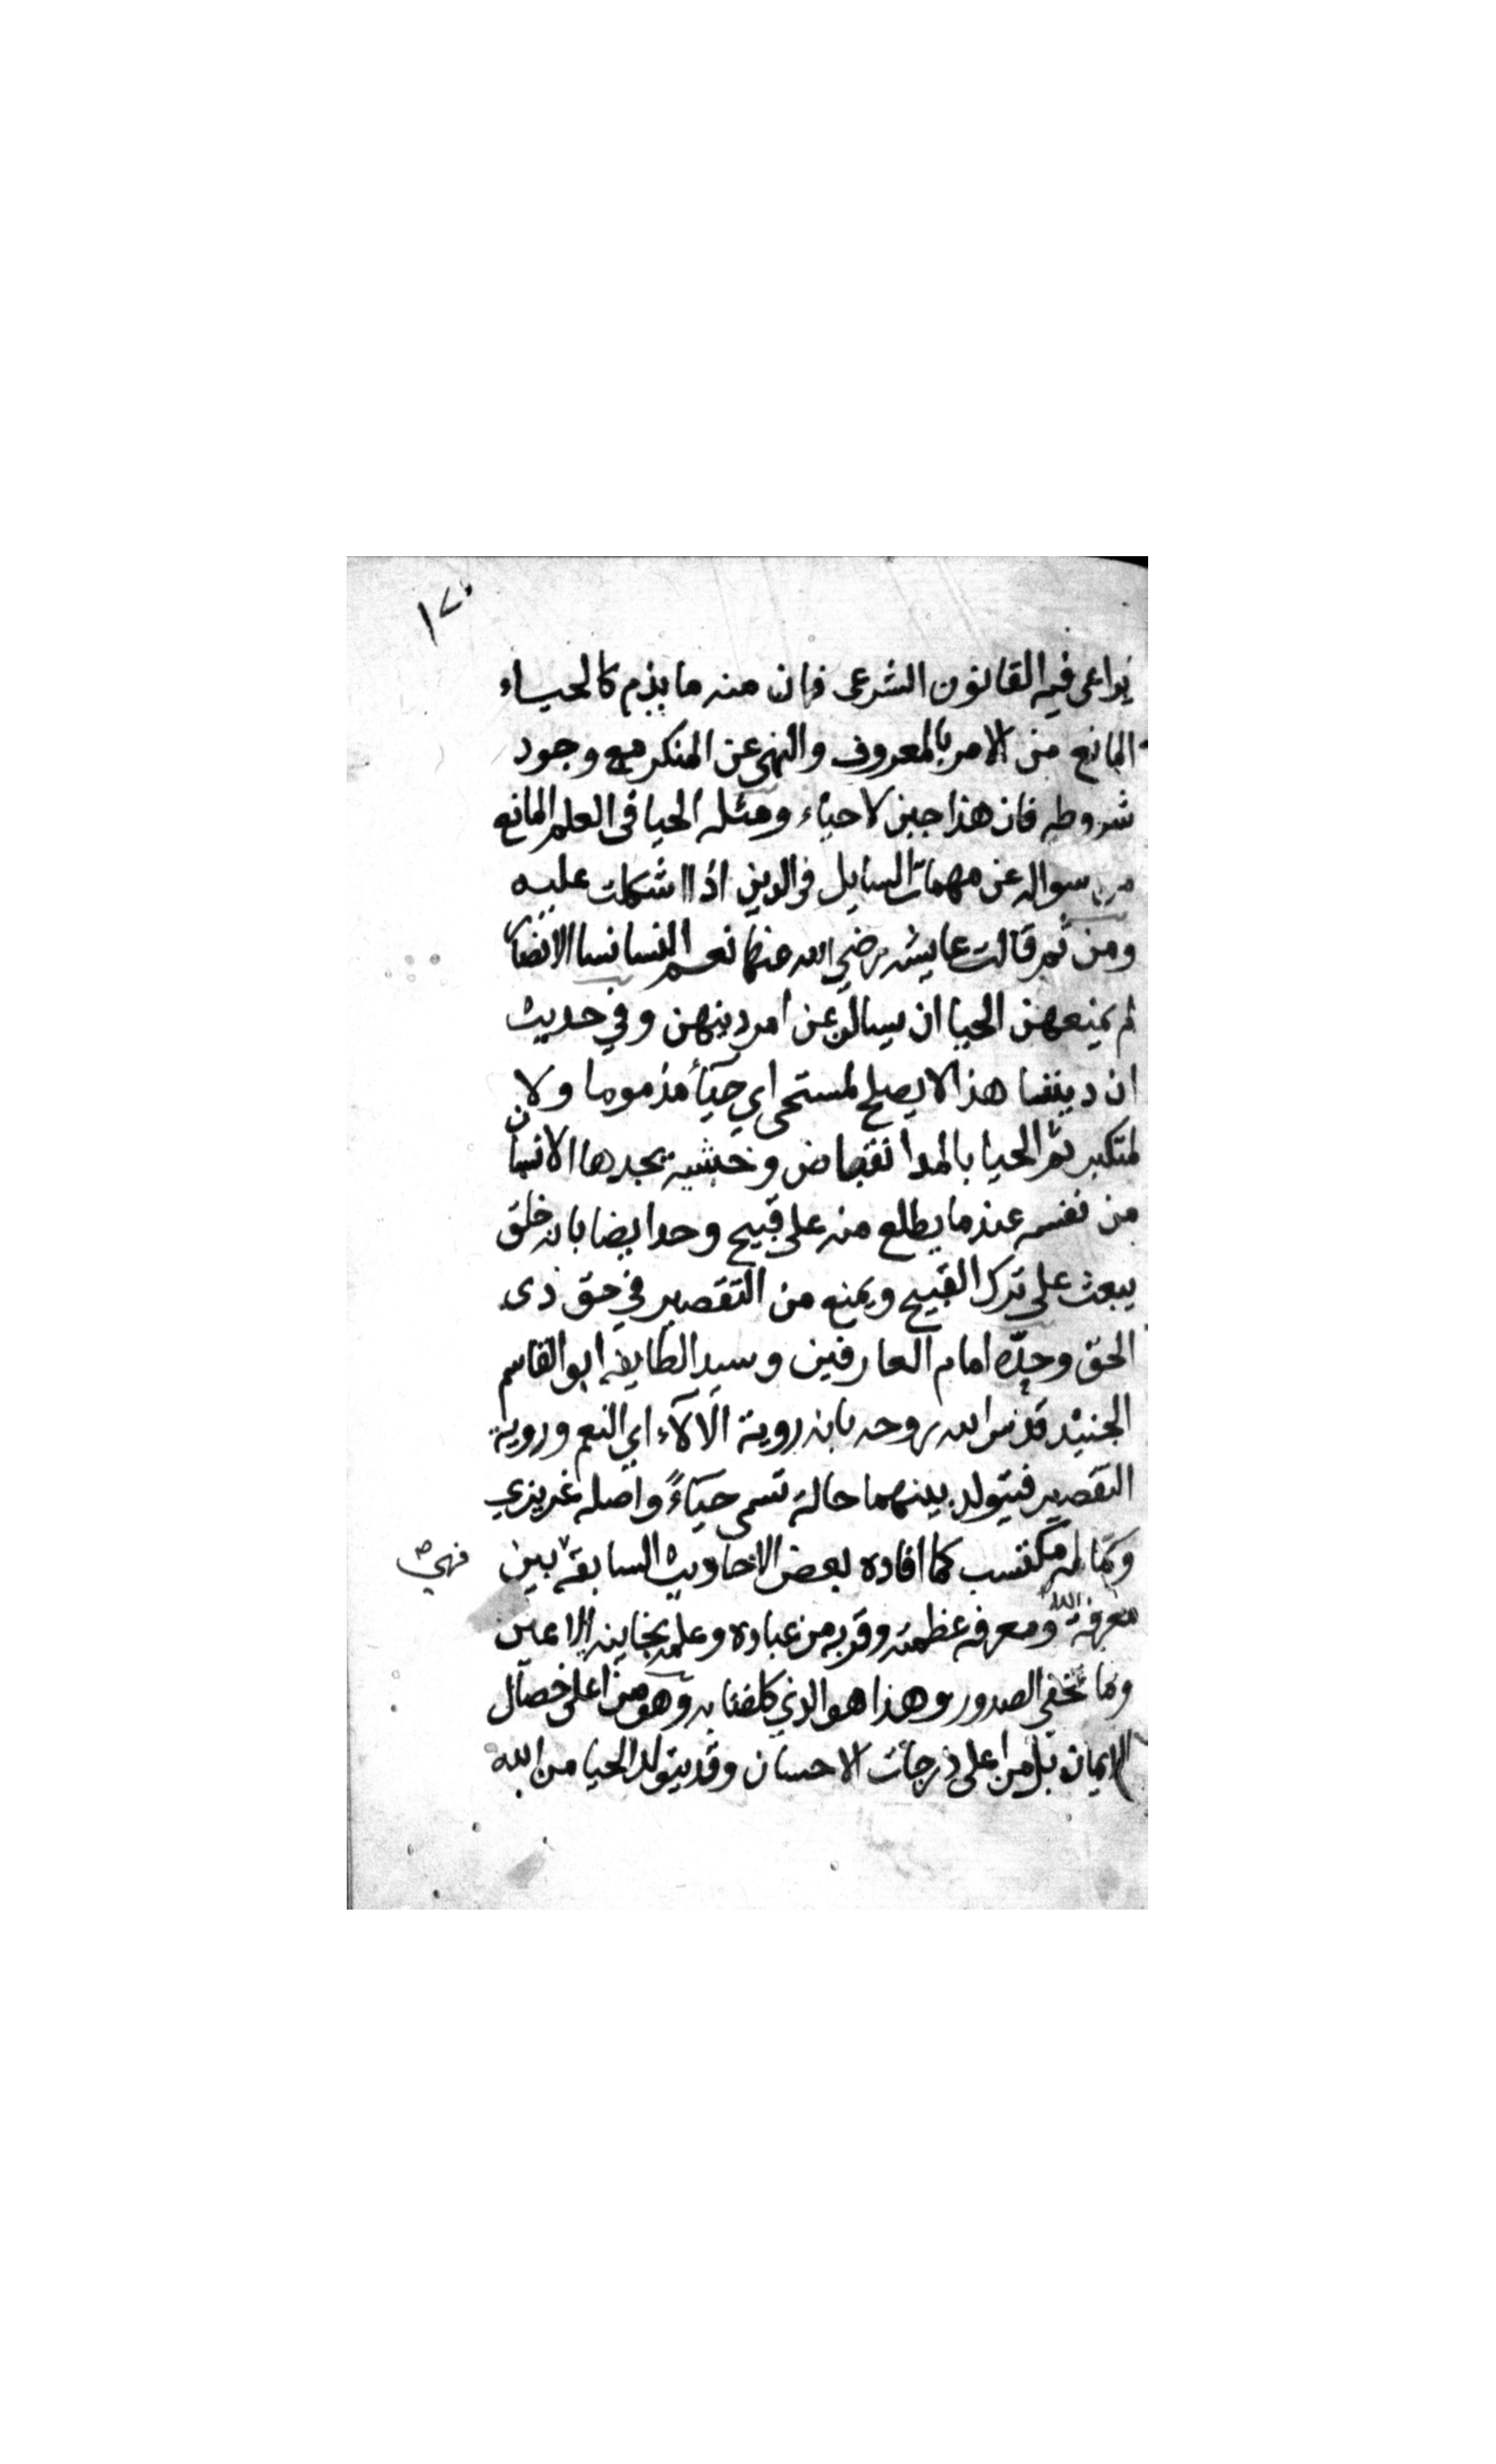 ١٧٠
يراعى فيه القانون الشرعى فان منه ما يذم كالحياء
المانع من الامر بالمعروف والنهى عن المنكر مع وجود
شروطه فان هذا جبن لا حياء ومثله الحيا فى العلم المانع
من سواله عن مهمات المسايل فى الدين اذا اشكلت عليه
ومن ثم قالت عايشه رضي الله عنها نعم النسا نسا الانصار
لم يمنعهن الحيا ان يسالن عن امر دينهن وفي حديث
ان ديننا هذا لا يصلح لمستحى اي حيآء مذموما ولا
لمتكبر ثم الحيا بالمد انقباض وخشية يجدها الانسان
من نفسه عندما يطلع منه على قبيح وحد ايضا بانه خلق
يبعث على ترك القبيح ويمنع من التقصير في حق ذى
الحق وحدّه امام العارفين وسيد الطايفه ابو القاسم
الجنيد قدس الله روحه بانه روية الآلاء اي النعم وروية
التقصير فيتولد بينهما حالة تسمى حيآءً واصله غريزي
وكماله مكتسب كما افاده بعض الاحاديث السابقة بين
فهي صح
معرفة الله ومعرفه عظمته وقربه من عباده وعلمه بخاينه الاعين
وما تخفى الصدور وهذا هو الذي كلفنا به وهو من اعلى خصال
الايمان بل من اعلى درجات الاحسان وقد يتولد الحيا من الله